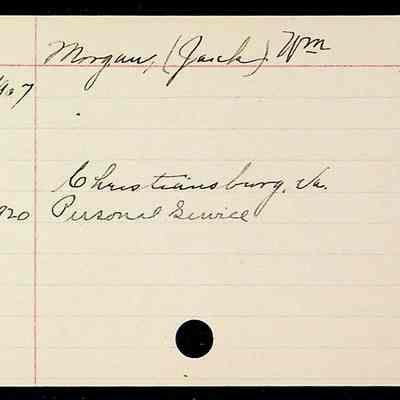 Morgan, (Jack) Wm
Christiansburg, Va.
920 Personal Service